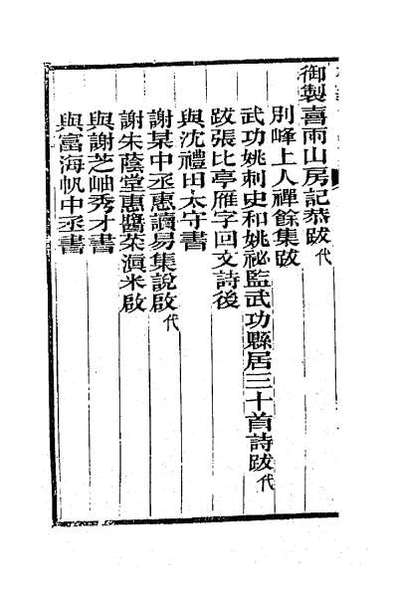 御製喜雨山房記恭跋代
別峰上人禪餘集跋
武功姚刺史和姚祕監武功縣居三十首詩跋代
跋張比亭雁字回文詩後
與沈禮田太守書
謝某中丞惠讀易集說啟代
謝朱蔭堂惠醬菜滇米啟
與謝芝岫秀才書
與富海帆中丞書